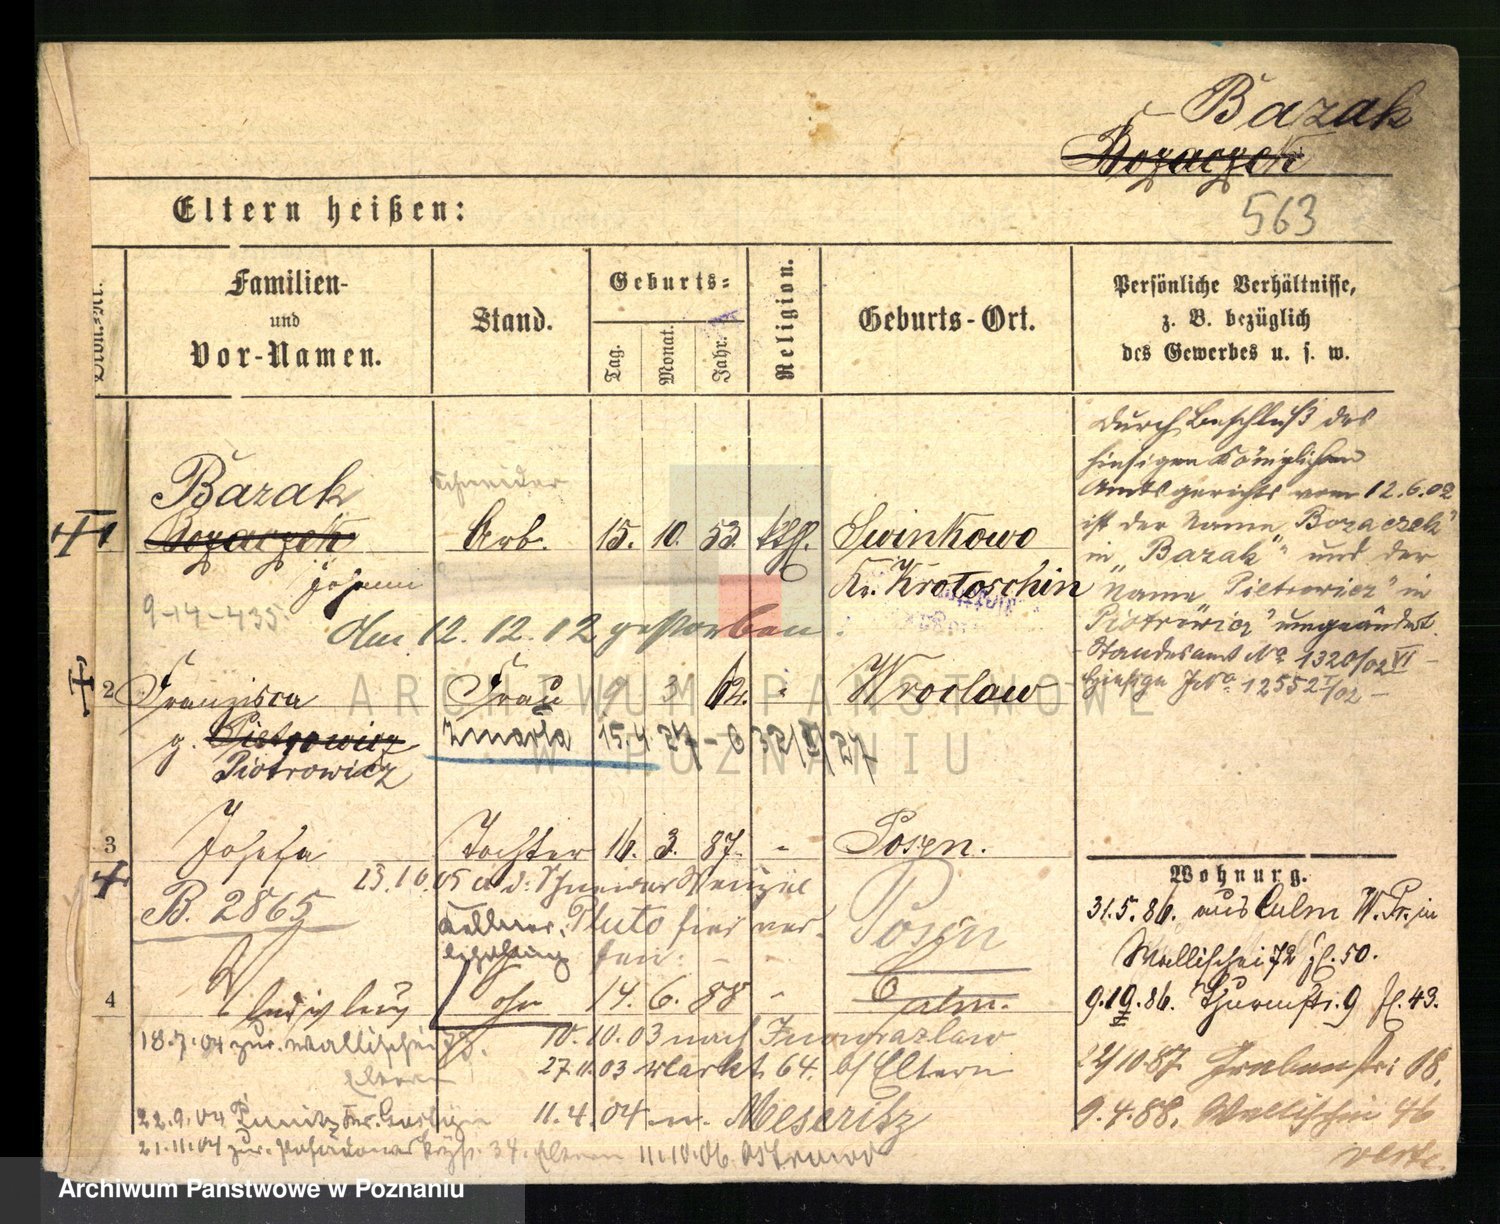 Bazak
Bozaczek
563
Eltern heißen:
Ordn.-Nr.
Familien-
und
Vor-Namen.
Stand.
Geburts-
Tag.
Monat.
Jahr.
Religion.
Geburts-Ort.
Persönliche Verhältnisse,
z. B. bezüglich
des Gewerbes u. s. w.
Durch Beschluß des
hiesigen Königlichen
Amtsgerichts vom 12.6.02
ist der Name "Bozaczek"
in "Bazak" und der
Name "Pietrowicz" in
"Piotrowicz" umgeändert.
Standesamt No 1320/02 VI
12552 I/02
Bazak
Schneider
Bozaczek Arb. 15. 10. 53. kth. Swinkowo
Johann Kr. Krotoschin
9-14-435.
den 12.12.12 gestorben.
2 Franzisca Frau 9 3 62. " Wroclaw
g. Pietrowicz zmarła 15.4.27
Piotrowicz
3 Josefa Tochter 16. 3. 87. " Posen.
23.10.05 a. d. Schneider
B. 2865
Kellner-
lehrling
Posen
4 Sohn 14. 6. 88 " Culm.
18.7.04 zur. Wallischei 73.
Eltern
10.10.03 nach Inowrazlaw
27.11.03 Markt 64. b/ Eltern
22.9.04 Punitz Kr. Gostyn
11.4.04 n. Meseritz
21.11.04 zur. 34. Eltern 11.10.06. Ostrowo
Wohnung.
31.5.86. aus Culm W. Pr. in
Wallischei 72 fl. 50.
9.10.86. Thurmstr. 9 fl. 43.
22/10 87. Grabenstr. 18.
9.4.88. Wallischei 46
verte.
ARCHIWUM PAŃSTWOWE
W POZNANIU
Archiwum Państwowe w Poznaniu